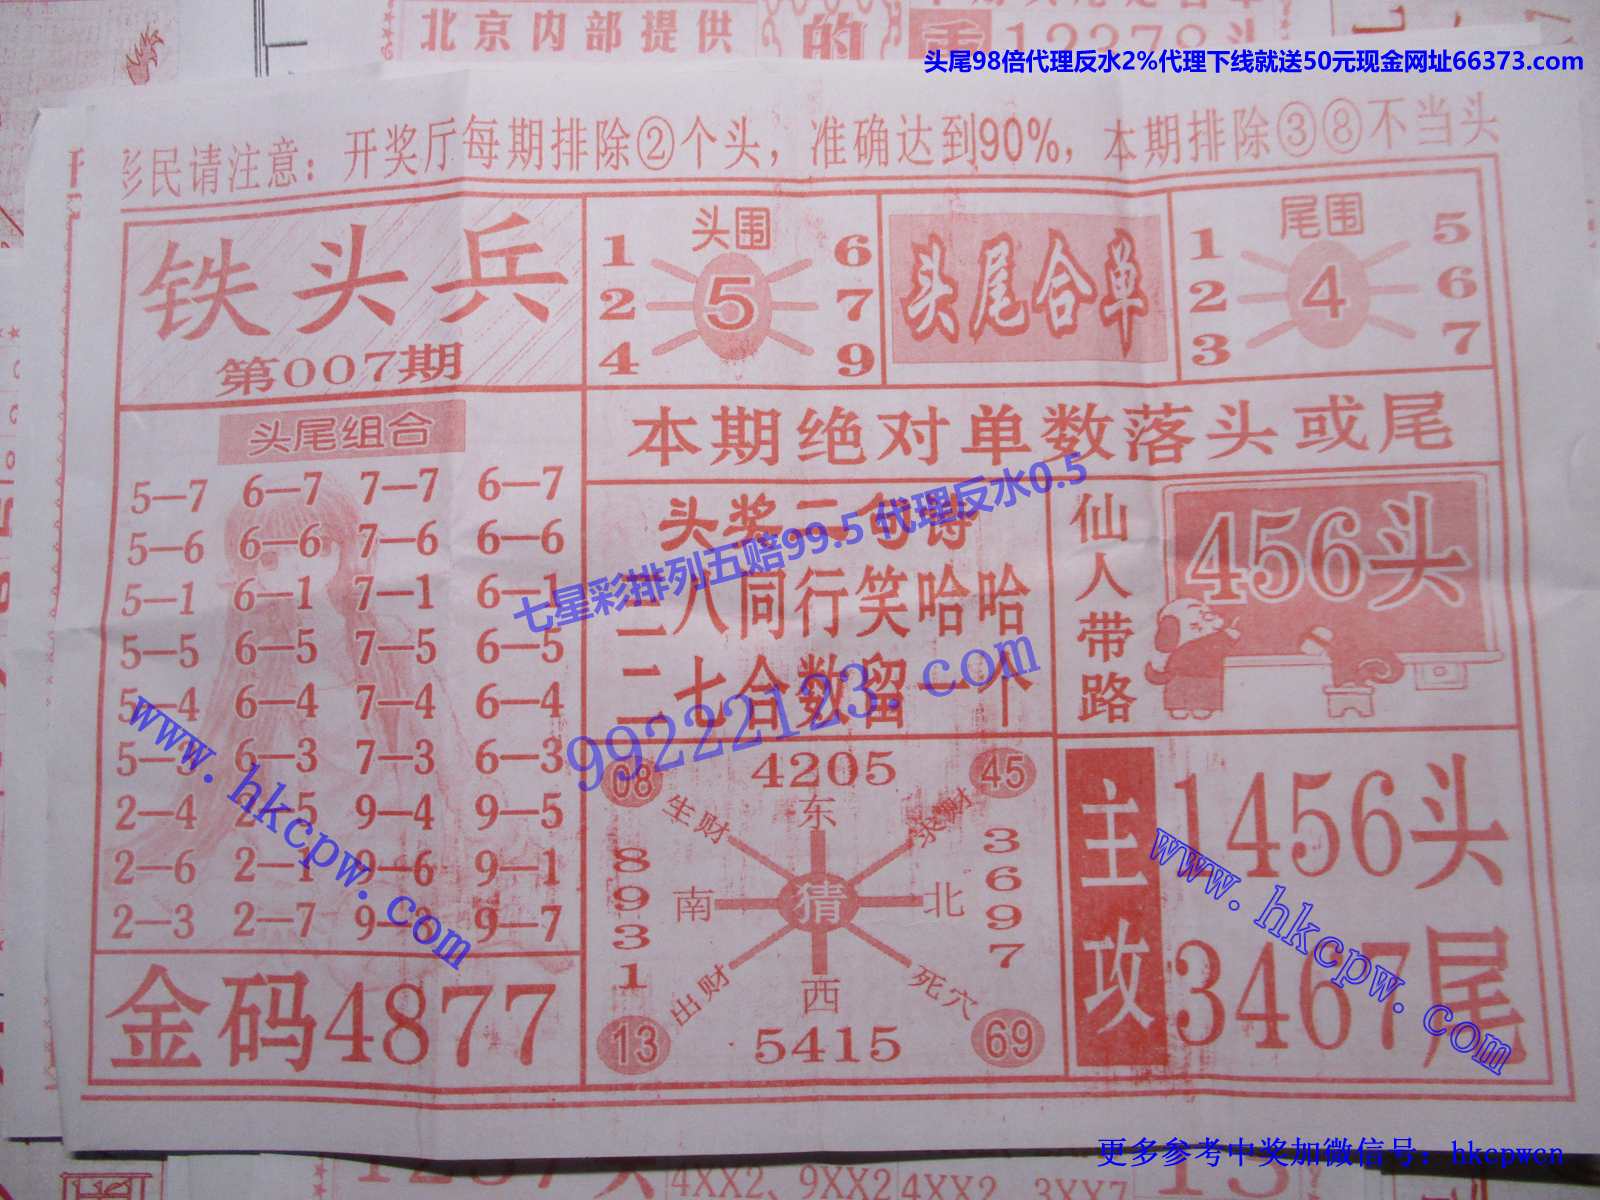 北京内部提供
的
12378头
头尾98倍代理反水2%代理下线就送50元现金网址66373.com
彩民请注意：开奖厅每期排除②个头，准确达到90%，本期排除③⑧不当头
铁头兵
第007期
头围
1 6
2 5 7
4 9
头尾合单
尾围
1 5
2 4 6
3 7
头尾组合
5—7 6—7 7—7 6—7
5—6 6—6 7—6 6—6
5—1 6—1 7—1 6—1
5—5 6—5 7—5 6—5
5—4 6—4 7—4 6—4
5—3 6—3 7—3 6—3
2—4 2—5 9—4 9—5
2—6 2—1 9—6 9—1
2—3 2—7 9—3 9—7
金码4877
本期绝对单数落头或尾
头奖二句诗
三八同行笑哈哈
二七合数留一个
七星彩排列五赔99.5 代理反水0.5
99222123.com
仙人带路
456头
08 4205 45
生财 东 求财
8931 南 猜 北 3697
出财 西 死穴
13 5415 69
主攻
1456头
3467尾
www.hkcpw.com
www.hkcpw.com
更多参考中奖加微信号：hkcpwcn
4XX2、9XX2
4XX2、3XX7